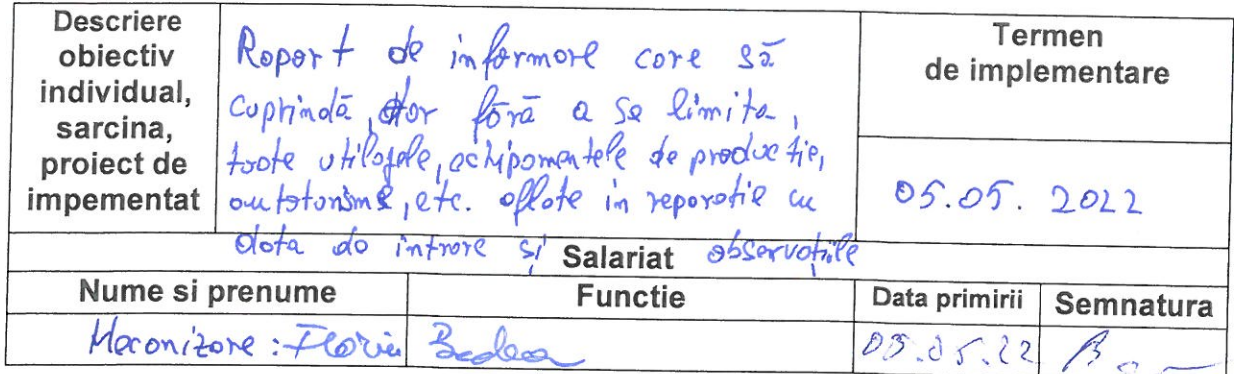 Descriere obiectiv individual, sarcina, proiect de impementat
Raport de informare care să
cuprindă, dar fără a se limita,
toate utilajele, echipamentele de producție,
autoturisme, etc. aflate in reparatie cu
data de intrare și observațiile
Termen
de implementare
05.05. 2022
Salariat
Nume si prenume Functie Data primirii Semnatura
Mecanizare: Florin Badea 05.05.22